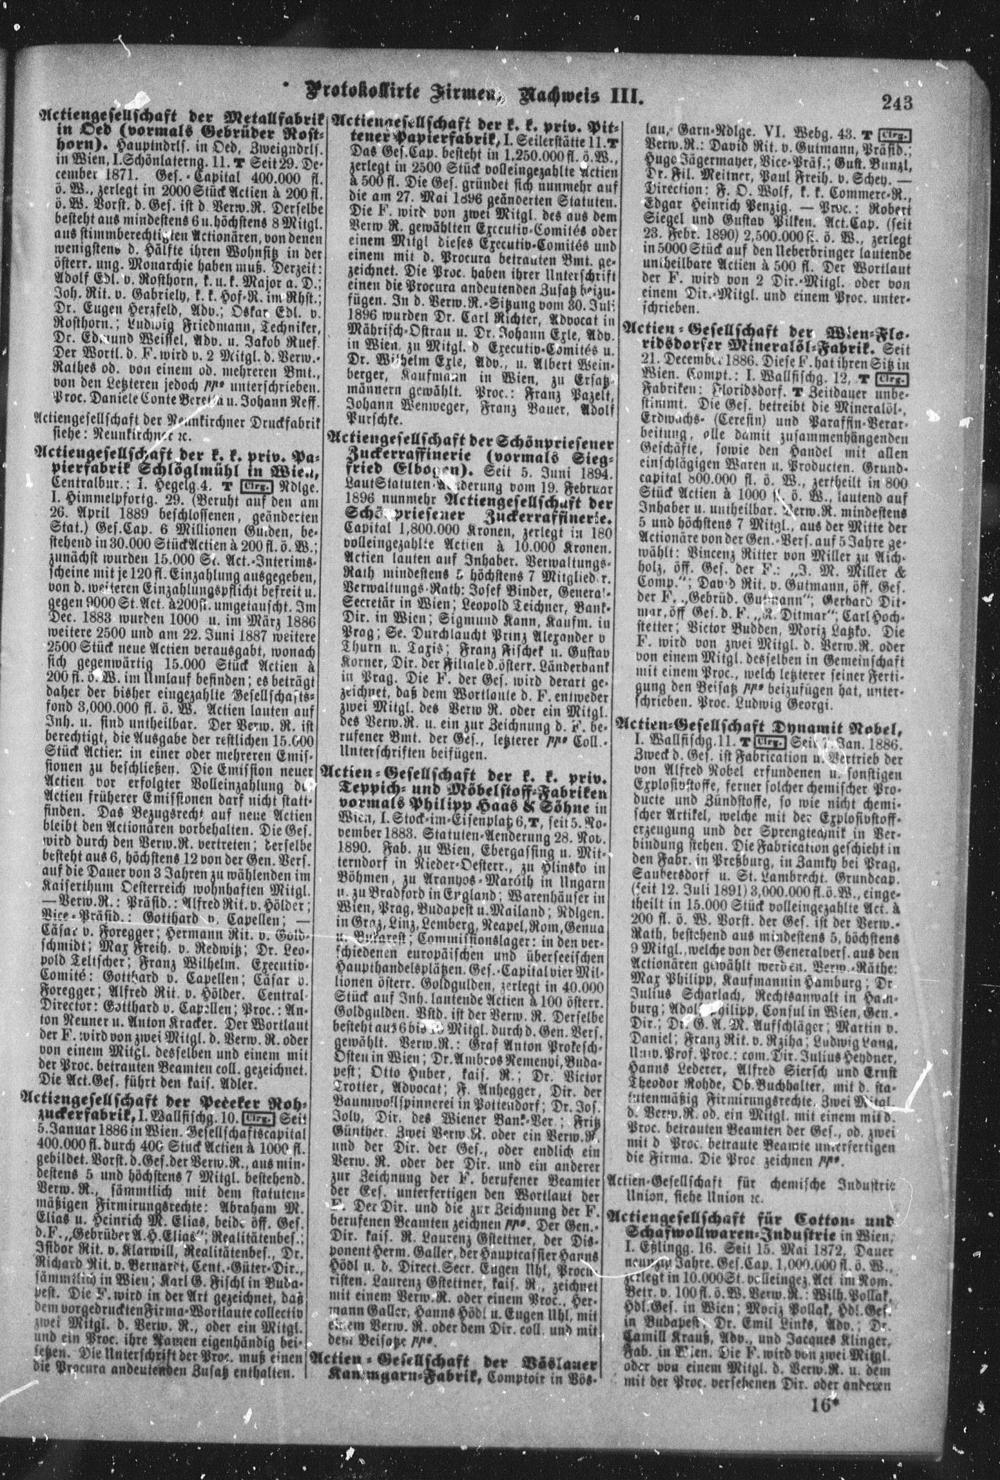 Protokollirte Firmen, Nachweis III.
243
Actiengesellschaft der Metallfabrik
in Oed (vormals Gebrüder Rost-
horn). Hauptndrls. in Oed, Zweigndrls.
in Wien, I. Schönlaterng. 11. T Seit 29. De-
cember 1871. Ges.-Capital 400.000 fl.
ö. W., zerlegt in 2000 Stück Actien à 200 fl.
ö. W. Vorst. d. Ges. ist d. Verw.R. Derselbe
besteht aus mindestens 6 u. höchstens 8 Mitgl.
aus stimmberechtigten Actionären, von denen
wenigstens d. Hälfte ihren Wohnsitz in der
österr. ung. Monarchie haben muß. Derzeit:
Adolf Edl. v. Rosthorn, k. u. k. Major a. D.;
Joh. Rit. v. Gabriely, k. k. Hof-R. im Rhst.;
Dr. Eugen Herzfeld, Adv.; Oskar Edl. v.
Rosthorn.; Ludwig Friedmann, Techniker,
Dr. Edmund Weissel, Adv. u. Jakob Ruef.
Der Wortl. d. F. wird v. 2 Mitgl. d. Verw.-
Rathes od. von einem od. mehreren Bmt.,
von den Letzteren jedoch pp° unterschrieben.
Proc. Daniele Conte Beretta u. Johann Neff.
Actiengesellschaft der Neunkirchner Druckfabrik
siehe: Neunkirchner ꝛc.
Actiengesellschaft der k. k. priv. Pa-
pierfabrik Schlöglmühl in Wien,
Centralbur.: I. Hegelg. 4. T Clrg. Ndlge.
I. Himmelpfortg. 29. (Beruht auf den am
26. April 1889 beschlossenen, geänderten
Stat.) Ges.Cap. 6 Millionen Gulden, be-
stehend in 30.000 Stück Actien à 200 fl. ö. W.;
zunächst wurden 15.000 St. Act.-Interims-
scheine mit je 120 fl. Einzahlung ausgegeben,
von d. weiteren Einzahlungspflicht befreit u.
gegen 9000 St. Act. à 200 fl. umgetauscht. Im
Dec. 1883 wurden 1000 u. im März 1886
weitere 2500 und am 22. Juni 1887 weitere
2500 Stück neue Actien verausgabt, wonach
sich gegenwärtig 15.000 Stück Actien à
200 fl. ö. W. im Umlauf befinden; es beträgt
daher der bisher eingezahlte Gesellschafts-
fond 3,000.000 fl. ö. W. Actien lauten auf
Inh. u. sind untheilbar. Der Verw. R. ist
berechtigt, die Ausgabe der restlichen 15.000
Stück Actien in einer oder mehreren Emis-
sionen zu beschließen. Die Emission neuer
Actien vor erfolgter Volleinzahlung der
Actien früherer Emissionen darf nicht statt-
finden. Das Bezugsrecht auf neue Actien
bleibt den Actionären vorbehalten. Die Ges.
wird durch den Verw.R. vertreten; derselbe
besteht aus 6, höchstens 12 von der Gen. Vers.
auf die Dauer von 3 Jahren zu wählenden im
Kaiserthum Oesterreich wohnhaften Mitgl.
— Verw.R.: Präsid.: Alfred Rit. v. Hölder;
Vice-Präsid.: Gotthard v. Capellen; —
Cäsar v. Foregger; Hermann Rit. v. Gold-
schmidt; Max Freih. v. Redwitz; Dr. Leo-
pold Teltscher; Franz Wilhelm. Executiv-
Comité: Gotthard v. Capellen; Cäsar v.
Foregger; Alfred Rit. v. Hölder. Central-
Director: Gotthard v. Capellen; Proc.: An-
ton Neuner u. Anton Kracker. Der Wortlaut
der F. wird von zwei Mitgl. d. Verw. R. oder
von einem Mitgl. desselben und einem mit
der Proc. betrauten Beamten coll. gezeichnet.
Die Act.Ges. führt den kais. Adler.
Actiengesellschaft der Peceker Roh-
zuckerfabrik, I. Wallfischg. 10. Clrg. Seit
5. Januar 1886 in Wien. Gesellschaftscapital
400.000 fl. durch 400 Stück Actien à 1000 fl.
gebildet. Vorst. d. Ges. der Verw. R., aus min-
destens 5 und höchstens 7 Mitgl. bestehend.
Verw. R., sämmtlich mit dem statuten-
mäßigen Firmirungsrechte: Abraham M.
Elias u. Heinrich M. Elias, beide öff. Ges.
d. F. „Gebrüder A. H. Elias"; Realitätenbes.;
Isidor Rit. v. Klarwill, Realitätenbes., Dr.
Richard Rit. v. Bernardt, Cent.-Güter-Dir.,
sämmtlich in Wien; Karl G. Fischl in Buda-
pest. Die F. wird in der Art gezeichnet, daß
dem vorgedruckten Firma-Wortlaute collectiv
zwei Mitgl. d. Verw. R., oder ein Mitgl.
und ein Proc. ihre Namen eigenhändig bei-
setzen. Die Unterschrift der Proc. muß einen
die Procura andeutenden Zusatz enthalten.
Actiengesellschaft der k. k. priv. Pit-
tener Papierfabrik, I. Seilerstätte 11. T
Das Ges. Cap. besteht in 1,250.000 fl. ö. W.,
zerlegt in 2500 Stück volleingezahlte Actien
à 500 fl. Die Ges. gründet sich nunmehr auf
die am 27. Mai 1896 geänderten Statuten.
Die F. wird von zwei Mitgl. des aus dem
Verw. R. gewählten Executiv-Comités oder
einem Mitgl. dieses Executiv-Comités und
einem mit d. Procura betrauten Bmt. ge-
zeichnet. Die Proc. haben ihrer Unterschrift
einen die Procura andeutenden Zusatz beizu-
fügen. In d. Verw.R.-Sitzung vom 30. Juli
1896 wurden Dr. Carl Richter, Advocat in
Mährisch-Ostrau u. Dr. Johann Exle, Adv.
in Wien, zu Mitgl. d. Executiv-Comités u.
Dr. Wilhelm Exle, Adv., u. Albert Wein-
berger, Kaufmann in Wien, zu Ersatz-
männern gewählt. Proc.: Franz Pazelt,
Johann Wenweger, Franz Bauer, Adolf
Purschke.
Actiengesellschaft der Schönpriesener
Zuckerraffinerie (vormals Sieg-
fried Elbogen). Seit 5. Juni 1894.
Laut Statuten-Aenderung vom 19. Februar
1896 nunmehr Actiengesellschaft der
Schönpriesener Zuckerraffinerie.
Capital 1,800.000 Kronen, zerlegt in 180
volleingezahlte Actien à 10.000 Kronen.
Actien lauten auf Inhaber. Verwaltungs-
Rath mindestens 5 höchstens 7 Mitglieder.
Verwaltungs-Rath: Josef Binder, General-
Secretär in Wien; Leopold Teichner, Bank-
Dir. in Wien; Sigmund Kann, Kaufm. in
Prag; Se. Durchlaucht Prinz Alexander v.
Thurn u. Taxis; Franz Fischek u. Gustav
Korner, Dir. der Filiale d. österr. Länderbank
in Prag. Die F. der Ges. wird derart ge-
zeichnet, daß dem Wortlaute d. F. entweder
zwei Mitgl. des Verw R. oder ein Mitgl.
des Verw.R. u. ein zur Zeichnung d. F. be-
rufener Bmt. der Ges., letzterer pp° Coll.-
Unterschriften beifügen.
Actien-Gesellschaft der k. k. priv.
Teppich- und Möbelstoff-Fabriken
vormals Philipp Haas & Söhne in
Wien, I. Stock-im-Eisenplatz 6, T, seit 5. No-
vember 1883. Statuten-Aenderung 28. Nov.
1890. Fab. zu Wien, Ebergassing u. Mit-
terndorf in Nieder-Oesterr., zu Hlinsko in
Böhmen, zu Aranyos-Maróth in Ungarn
u. zu Bradford in England; Warenhäuser in
Wien, Prag, Budapest u. Mailand; Ndlgen.
in Graz, Linz, Lemberg, Neapel, Rom, Genua
u. Bukarest; Commissionslager: in den ver-
schiedenen europäischen und überseeischen
Haupthandelsplätzen. Ges.-Capital vier Mil-
lionen österr. Goldgulden, zerlegt in 40.000
Stück auf Inh. lautende Actien à 100 österr.
Goldgulden. Vstd. ist der Verw. R. Derselbe
besteht aus 6 bis Mitgl. durch d. Gen. Vers.
gewählt. Verw.R.: Graf Anton Prokesch-
Osten in Wien; Dr. Ambros Remenyi, Buda-
pest; Otto Huber, kais. R.; Dr. Victor
Trotter, Advocat; F. Anhegger, Dir. der
Baumwollspinnerei in Pottendorf; Dr. Jos.
Joly, Dir. des Wiener Bank-Ver.; Fritz
Günther. Zwei Verw. R. oder ein Verw. R.
und der Dir. der Ges., oder endlich ein
Verw. R. oder der Dir. und ein anderer
zur Zeichnung der F. berufener Beamter
der Ges. unterfertigen den Wortlaut der
F. Der Dir. und die zur Zeichnung der F.
berufenen Beamten zeichnen pp°. Der Gen.-
Dir. kais. R. Laurenz Gstettner, der Dis-
ponent Herm. Galler, der Hauptcassier Hanns
Hödl u. d. Direct. Secr. Eugen Uhl, Procu-
risten. Laurenz Gstettner, kais. R., zeichnet
mit einem Verw. R. oder einem Proc., Her-
mann Galler, Hanns Hödl u. Eugen Uhl, mit
einem Verw. R. oder dem Dir. coll. und mit
dem Beisatze pp°.
Actien-Gesellschaft der Vöslauer
Kammgarn-Fabrik, Comptoir in Vös-
lau, Garn-Ndlge. VI. Webg. 43. T Clrg.
Verw. R.: David Rit. v. Gutmann, Präsid.;
Hugo Jägermayer, Vice-Präs.; Gust. Bunzl,
Dr. Fil. Meitner, Paul Freih. v. Schey. —
Direction: F. O. Wolf, k. k. Commerc-R.,
Edgar Heinrich Penzig. — Proc.: Robert
Siegel und Gustav Pilken. Act.Cap. (seit
23. Febr. 1890) 2,500.000 fl. ö. W., zerlegt
in 5000 Stück auf den Ueberbringer lautende
untheilbare Actien à 500 fl. Der Wortlaut
der F. wird von 2 Dir.-Mitgl. oder von
einem Dir.-Mitgl. und einem Proc. unter-
schrieben.
Actien-Gesellschaft der Wien-Flo-
ridsdorfer Mineralöl-Fabrik. Seit
21. December 1886. Diese F. hat ihren Sitz in
Wien. Kompt.: I. Wallfischg. 12, T Clrg.
Fabriken: Floridsdorf. T Zeitdauer unbe-
stimmt. Die Ges. betreibt die Mineralöl-,
Erdwachs- (Ceresin) und Paraffin-Verar-
beitung, olle damit zusammenhängenden
Geschäfte, sowie den Handel mit allen
einschlägigen Waren u. Producten. Grund-
capital 800.000 fl. ö. W., zertheilt in 800
Stück Actien à 1000 fl. ö. W., lautend auf
Inhaber u. untheilbar. Verw.R. mindestens
5 und höchstens 7 Mitgl., aus der Mitte der
Actionäre von der Gen.-Vers. auf 5 Jahre ge-
wählt: Vincenz Ritter von Miller zu Aich-
holz, öff. Ges. der F.: „J. M. Miller &
Comp."; David Rit. v. Gutmann, öff. Ges.
der F. „Gebrüd. Gutmann"; Gerhard Dit-
mar, öff Ges. d. F. „R. Ditmar"; Carl Hoch-
stetter; Victor Budden, Moriz Latzko. Die
F. wird von zwei Mitgl. d. Verw.R. oder
von einem Mitgl. desselben in Gemeinschaft
mit einem Proc., welch letzterer seiner Ferti-
gung den Beisatz pp° beizufügen hat, unter-
schrieben. Proc. Ludwig Georgi.
Actien-Gesellschaft Dynamit Nobel,
I. Wallfischg. 11. T Clrg. Seit Jan. 1886.
Zweck d. Ges. ist Fabrication u. Vertrieb der
von Alfred Nobel erfundenen u. sonstigen
Explosivstoffe, ferner solcher chemischer Pro-
ducte und Zündstoffe, so wie nicht chemi-
scher Artikel, welche mit der Explosivstoff-
erzeugung und der Sprengtechnik in Ver-
bindung stehen. Die Fabrication geschieht in
den Fabr. in Preßburg, in Zamky bei Prag,
Saubersdorf u. St. Lambrecht. Grundcap.
(seit 12. Juli 1891) 3,000.000 fl. ö. W., einge-
theilt in 15.000 Stück volleingezahlte Act. à
200 fl. ö. W. Vorst. der Ges. ist der Verw.-
Rath, bestehend aus mindestens 5, höchstens
9 Mitgl., welche von der Generalvers. aus den
Actionären gewählt werden. Verw.-Räthe:
Max Philipp, Kaufmann in Hamburg; Dr.
Julius Scharlach, Rechtsanwalt in Ham-
burg; Adolf Philipp, Consul in Wien, Gen.-
Dir.; Dr. G. A. M. Aufschläger; Martin v.
Daniel; Franz Rit. v. Rziha; Ludwig Lang,
Univ. Prof. Proc.: com. Dir. Julius Heydner,
Hanns Lederer, Alfred Siersch und Ernst
Theodor Rohde, Ob. Buchhalter, mit d. sta-
tutenmäßig Firmirungsrechte. Zwei Mitgl.
d. Verw. R. od. ein Mitgl. mit einem mit d.
Proc. betrauten Beamten der Ges., od. zwei
mit d Proc. betraute Beamte unterfertigen
die Firma. Die Proc zeichnen pp°.
Actien-Gesellschaft für chemische Industrie
Union, siehe Union ꝛc.
Actiengesellschaft für Cotton- und
Schafwollwaren-Industrie in Wien,
I. Eßlingg. 16. Seit 15. Mai 1872, Dauer
neunzig Jahre. Ges. Cap. 1,000.000 fl. ö. W.,
zerlegt in 10.000 St. volleingez. Act. im Nom.
Betr. v. 100 fl. ö. W. Verw. R.: Wilh. Pollak,
Hdl. Ges. in Wien; Moriz Pollak, Hdl. Ges.
in Budapest; Dr. Emil Links, Adv.; Dr.
Camill Krauß, Adv., und Jacques Klinger,
Fab. in Wien. Die F. wird von zwei Mitgl.
oder von einem Mitgl. d. Verw. R. u. dem
mit der Proc. versehenen Dir. oder anderen
16*